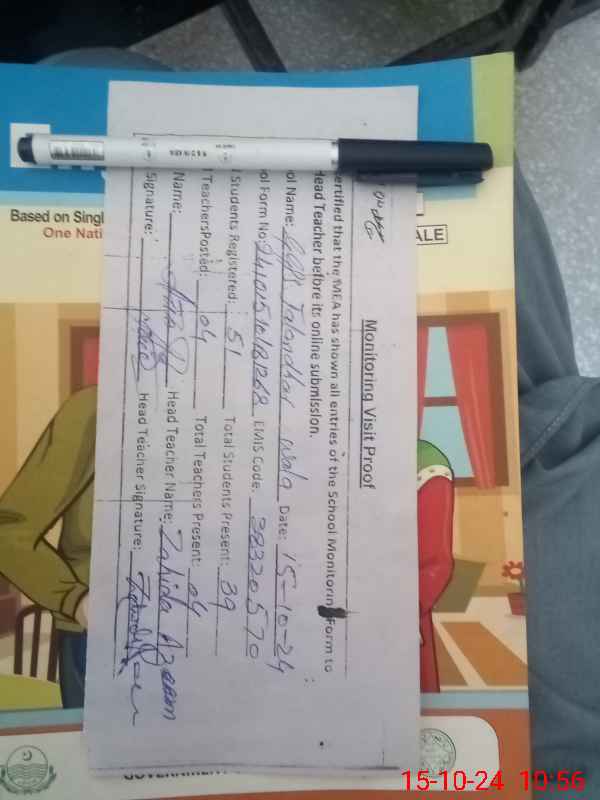 Monitoring Visit Proof
ertified that the MEA has shown all entries of the School Monitorin Form to
Head Teacher before its online submission.
ol Name: GGPS Jalandhar wala Date: 15-10-24
ol Form No: EMIS Code: 38320570
l Students Registered: 51 Total Students Present: 39
l TeachersPosted: 04 Total Teachers Present: 04
Name: Head Teacher Name: Zahida
Signature: Head Teacher Signature:
Based on Singl
One Nati
ALE
GOVERNMENT
15-10-24 10:56